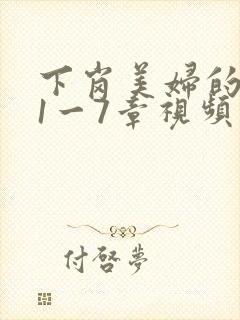 下岗美婦的
1一7章視頻
付啓夢